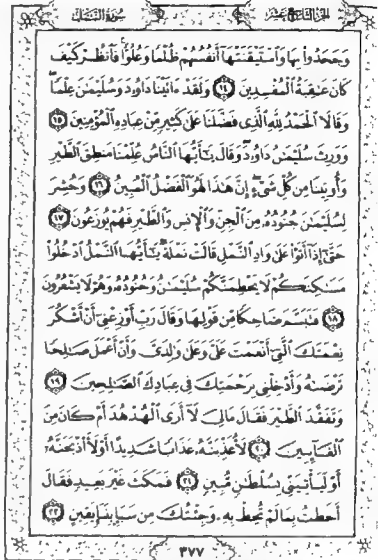 الجزء التاسع عشر سورة النمل
وَجَحَدُوا۟ بِهَا وَٱسْتَيْقَنَتْهَآ أَنفُسُهُمْ ظُلْمًا وَعُلُوًّا ۚ فَٱنظُرْ كَيْفَ
كَانَ عَٰقِبَةُ ٱلْمُفْسِدِينَ ١٤ وَلَقَدْ ءَاتَيْنَا دَاوُۥدَ وَسُلَيْمَٰنَ عِلْمًا ۖ
وَقَالَا ٱلْحَمْدُ لِلَّهِ ٱلَّذِى فَضَّلَنَا عَلَىٰ كَثِيرٍ مِّنْ عِبَادِهِ ٱلْمُؤْمِنِينَ ١٥
وَوَرِثَ سُلَيْمَٰنُ دَاوُۥدَ ۖ وَقَالَ يَٰٓأَيُّهَا ٱلنَّاسُ عُلِّمْنَا مَنطِقَ ٱلطَّيْرِ
وَأُوتِينَا مِن كُلِّ شَىْءٍ ۖ إِنَّ هَٰذَا لَهُوَ ٱلْفَضْلُ ٱلْمُبِينُ ١٦ وَحُشِرَ
لِسُلَيْمَٰنَ جُنُودُهُۥ مِنَ ٱلْجِنِّ وَٱلْإِنسِ وَٱلطَّيْرِ فَهُمْ يُوزَعُونَ ١٧
حَتَّىٰٓ إِذَآ أَتَوْا۟ عَلَىٰ وَادِ ٱلنَّمْلِ قَالَتْ نَمْلَةٌ يَٰٓأَيُّهَا ٱلنَّمْلُ ٱدْخُلُوا۟
مَسَٰكِنَكُمْ لَا يَحْطِمَنَّكُمْ سُلَيْمَٰنُ وَجُنُودُهُۥ وَهُمْ لَا يَشْعُرُونَ
١٨ فَتَبَسَّمَ ضَاحِكًا مِّن قَوْلِهَا وَقَالَ رَبِّ أَوْزِعْنِىٓ أَنْ أَشْكُرَ
نِعْمَتَكَ ٱلَّتِىٓ أَنْعَمْتَ عَلَىَّ وَعَلَىٰ وَٰلِدَىَّ وَأَنْ أَعْمَلَ صَٰلِحًا
تَرْضَىٰهُ وَأَدْخِلْنِى بِرَحْمَتِكَ فِى عِبَادِكَ ٱلصَّٰلِحِينَ ١٩
وَتَفَقَّدَ ٱلطَّيْرَ فَقَالَ مَا لِىَ لَآ أَرَى ٱلْهُدْهُدَ أَمْ كَانَ مِنَ
ٱلْغَآئِبِينَ ٢٠ لَأُعَذِّبَنَّهُۥ عَذَابًا شَدِيدًا أَوْ لَأَا۟ذْبَحَنَّهُۥٓ
أَوْ لَيَأْتِيَنِّى بِسُلْطَٰنٍ مُّبِينٍ ٢١ فَمَكَثَ غَيْرَ بَعِيدٍ فَقَالَ
أَحَطتُ بِمَا لَمْ تُحِطْ بِهِۦ وَجِئْتُكَ مِن سَبَإٍۭ بِنَبَإٍ يَقِينٍ ٢٢
٣٧٧